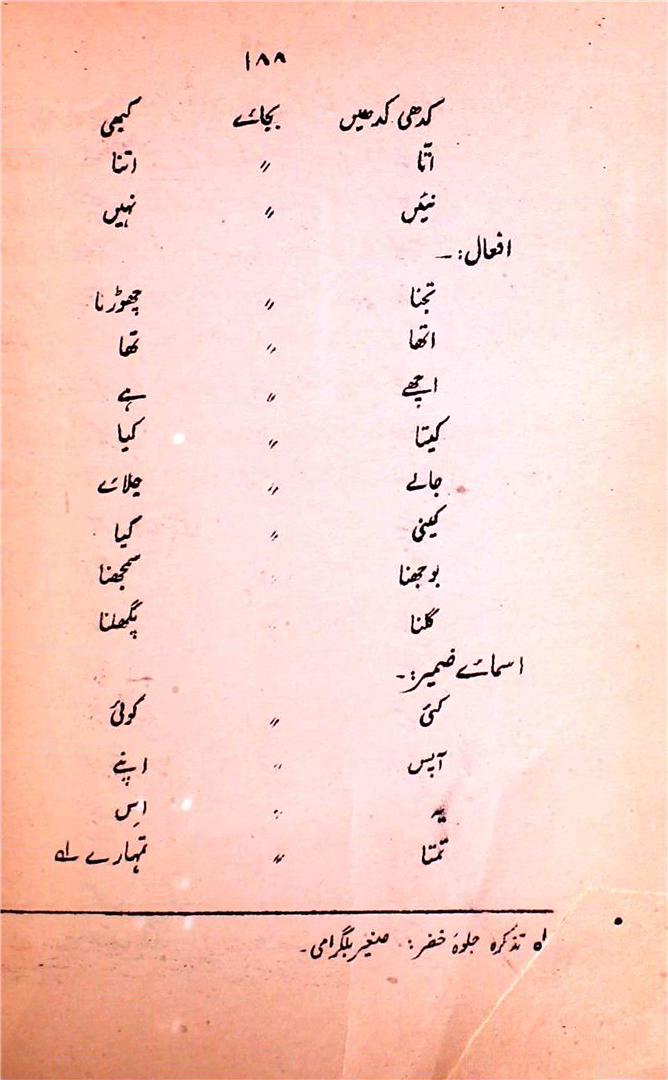 ۱۸۸
کدھی کدھیں بجائے کبھی
اتّا 〃 اتنا
نئیں 〃 نہیں
افعال:۔
تجنا 〃 چھوڑنا
اتھا 〃 تھا
اچھے 〃 ہے
کیتا 〃 کیا
جالے 〃 جلائے
کیتی 〃 کیا
بوجھنا 〃 سمجھنا
گلنا پگھلنا
اسمائے ضمیر:۔
کئی 〃 کوئی
آپس 〃 اپنے
یہ 〃 اِس
تمنا 〃 تمہارے ؎۱
؎۱ تذکرہ جلوۂ خضر: صغیر بلگرامی۔